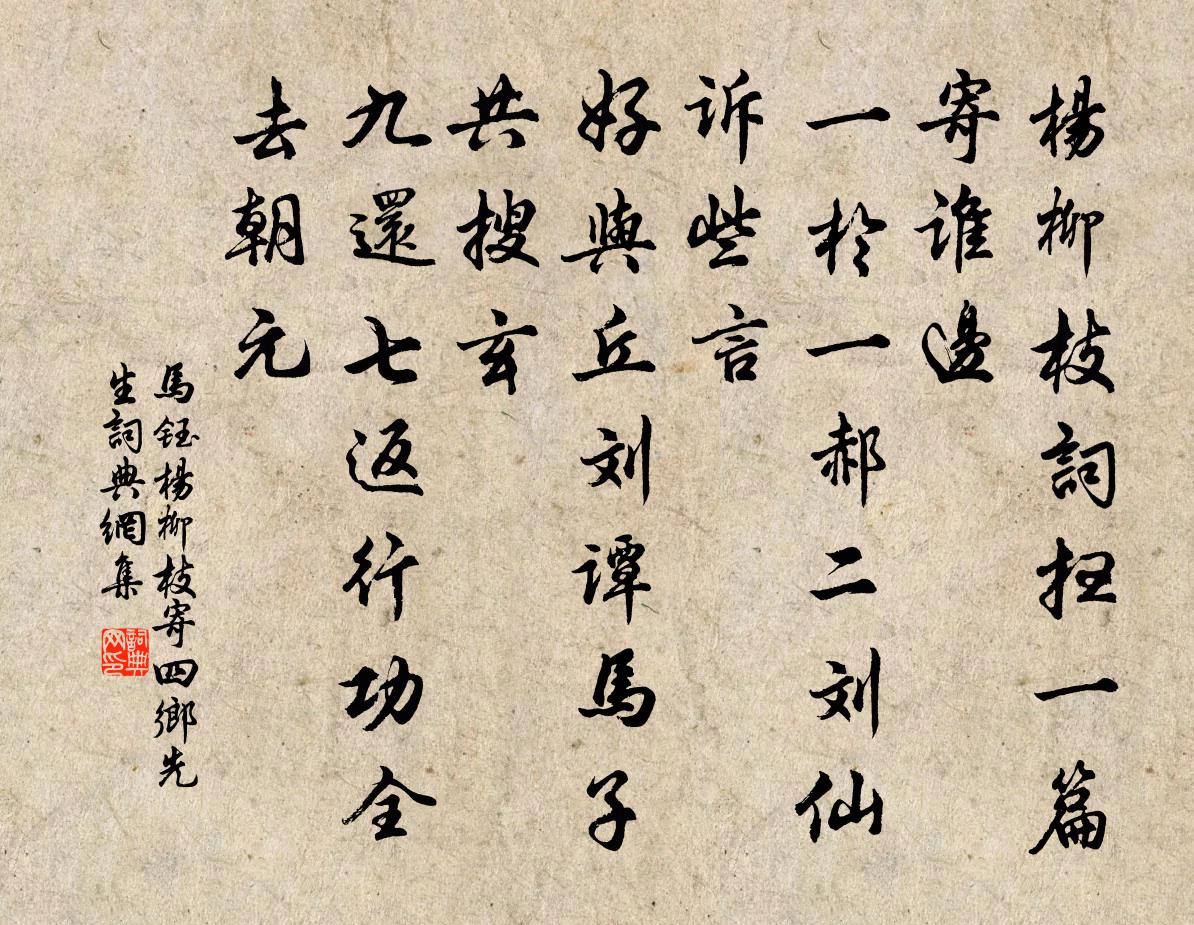 楊柳枝詞抂一篇
寄誰邊
一於一郝二刘仙
訴些言
好與丘刘譚馬子
共搜玄
九還七返行功全
去朝元
馬鈺楊柳枝寄四鄉先
生詞典網集
詞典网印